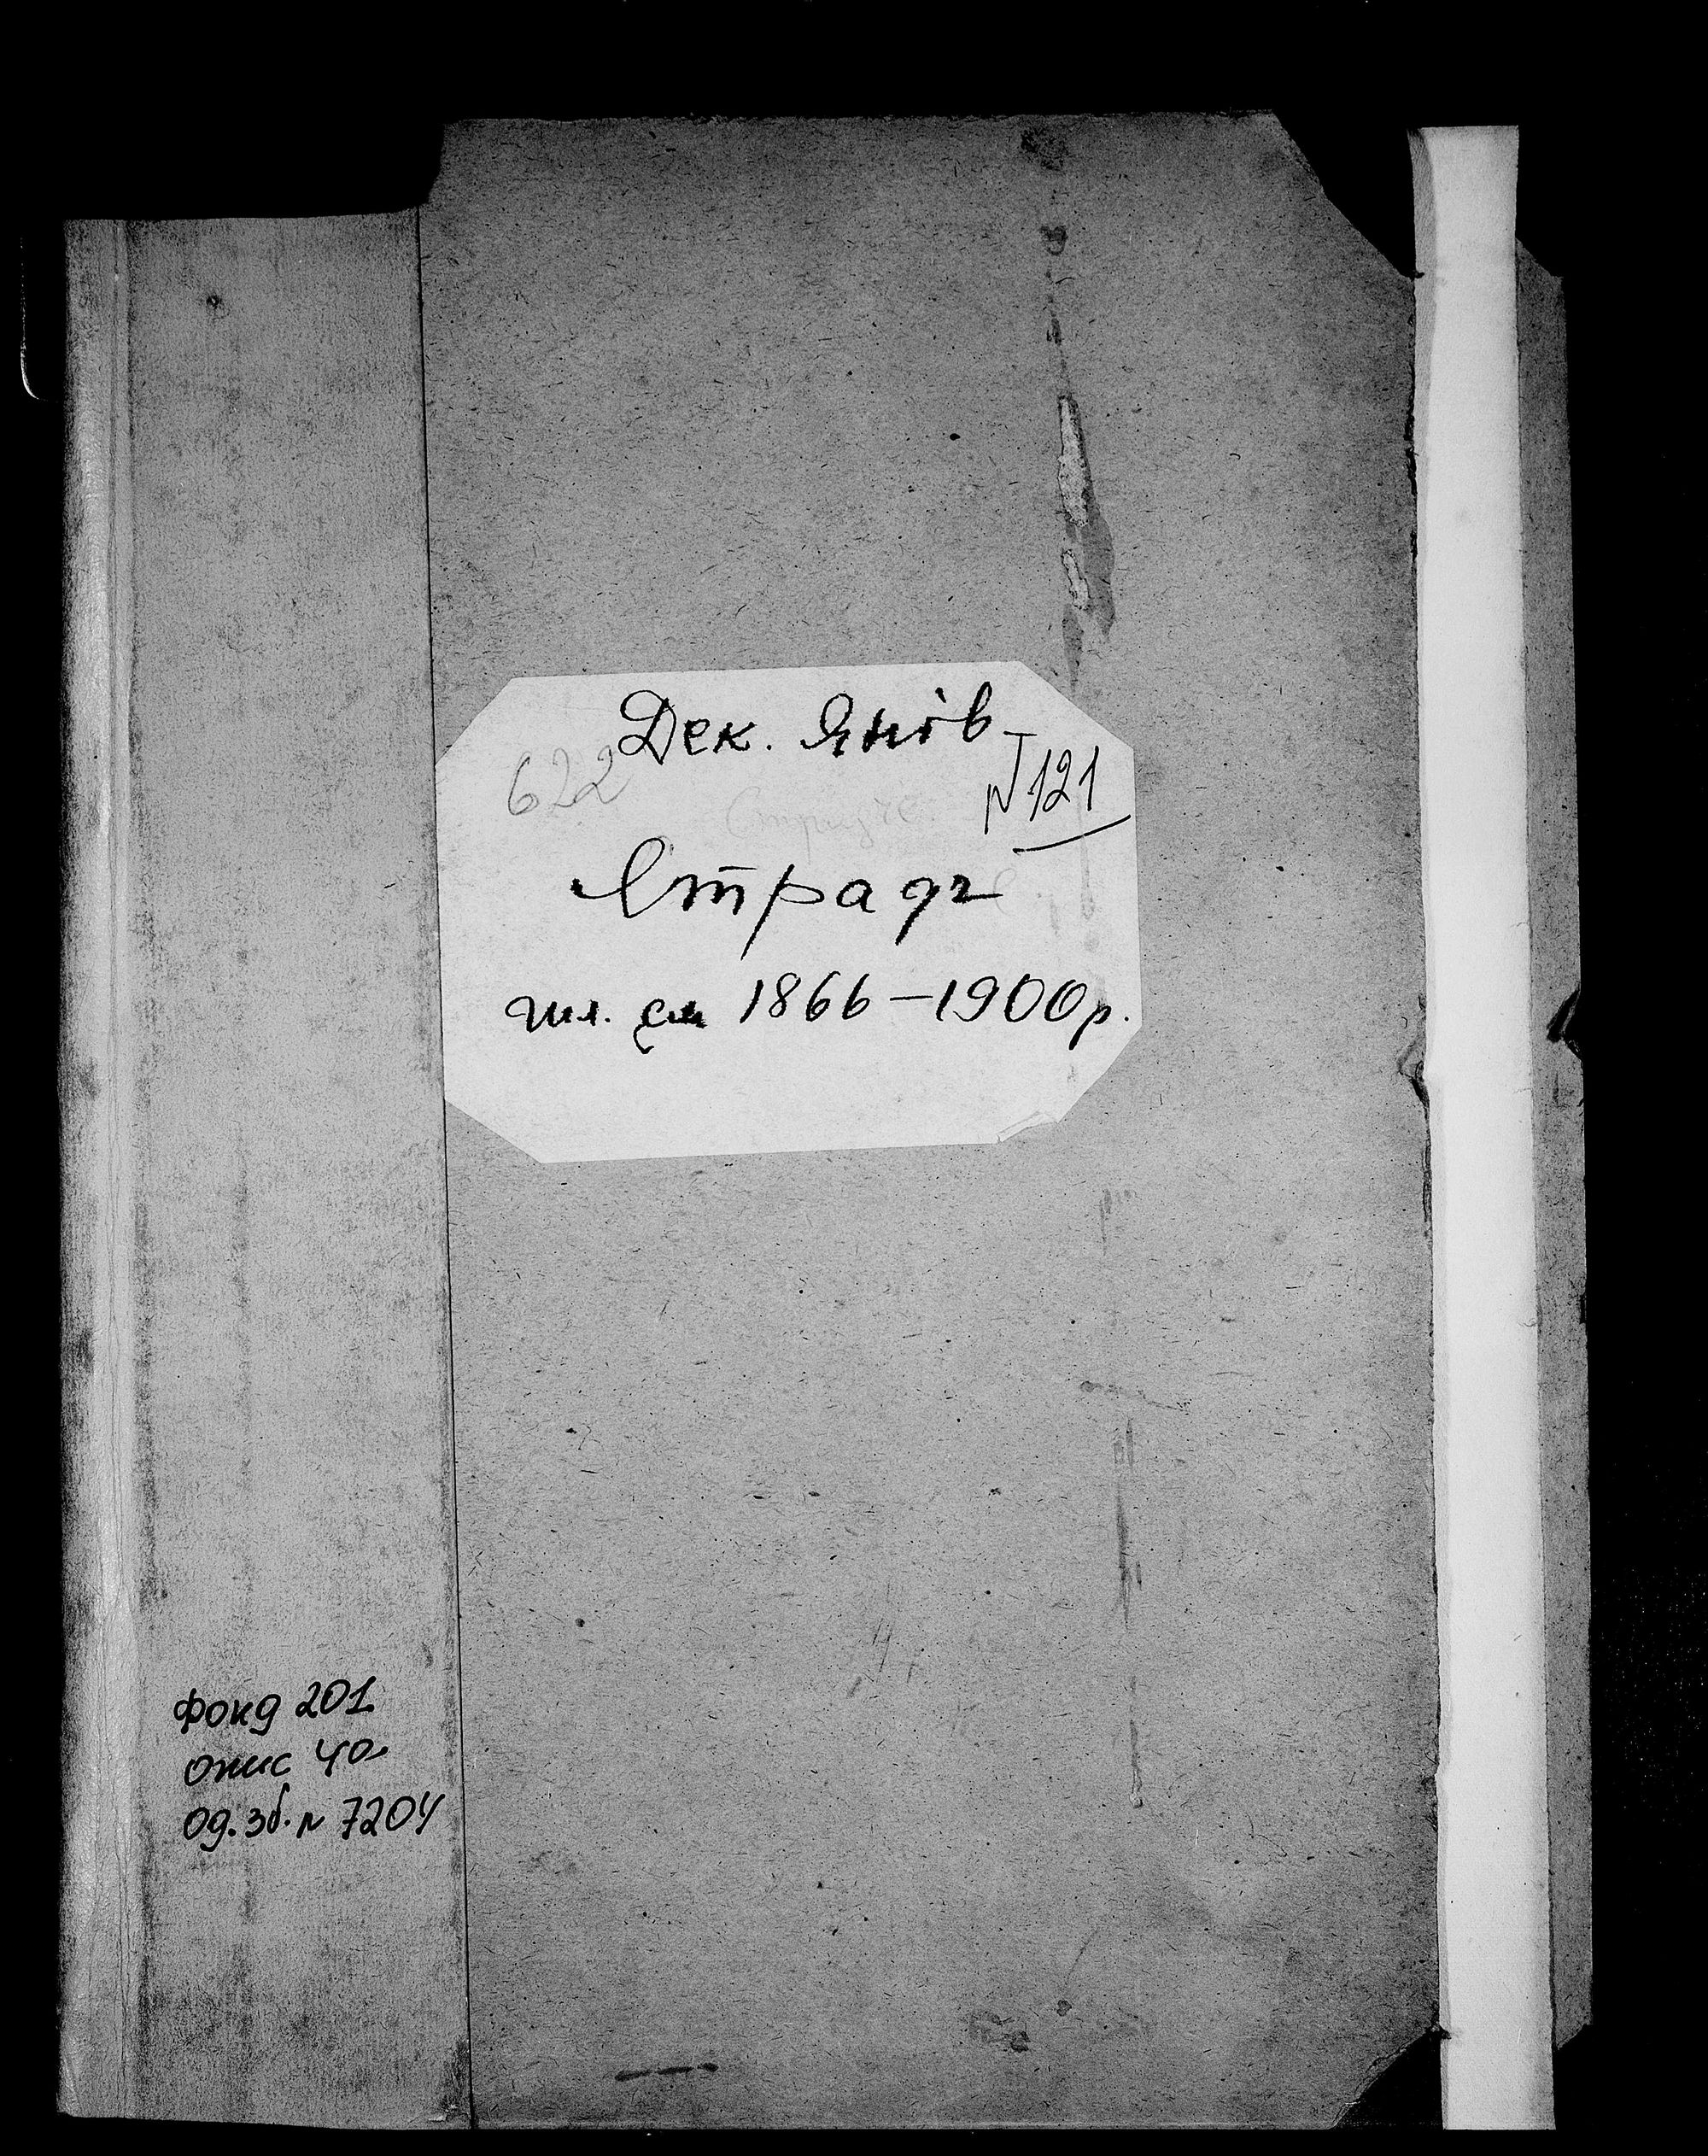 Дек. Янів
622
N 121
Ятрадч
шл. см 1866 – 1900 р.
Фонд 201
опис 4а
од. зб. N 7204